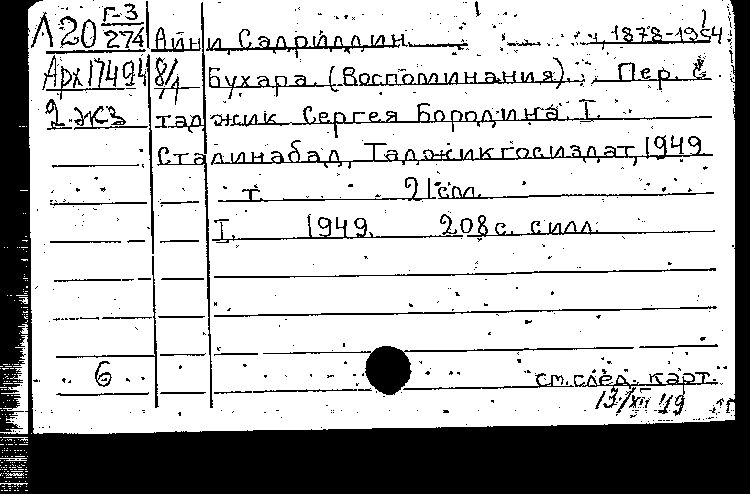 Л20 Г-3/274 Айни, Садриддин. , 1878-1954.
Арх17494 8/1 Бухара. (Воспоминания). Пер. с
2 экз таджик. Сергея Бородина. I.
Сталинабад, Таджикгосиздат, 1949
т. 21см.
I. 1949. 208с. силл.
6 см. след. карт.
13/XII 49